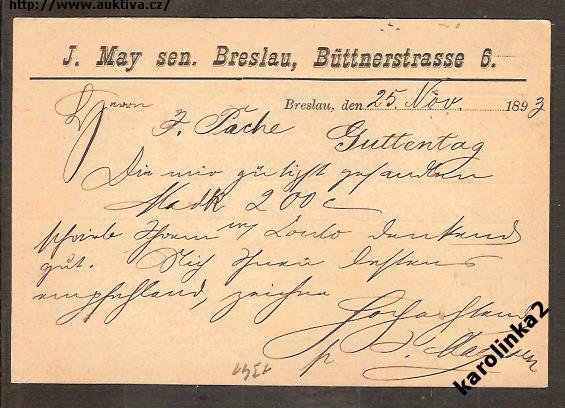 http://www.auktiva.cz/
J. May sen. Breslau, Büttnerstrasse 6.
Breslau, den 25. Nov. 1893
Herrn
J. Pache Guttentag
Die mir gütigst gesandten
Mark 200 c
schreibe Ihrem w/ Conto dankend
gut. Mich Ihnen bestens
empfehlend, zeichne
Hochachtend
p J. May sen
1341
karolinka2